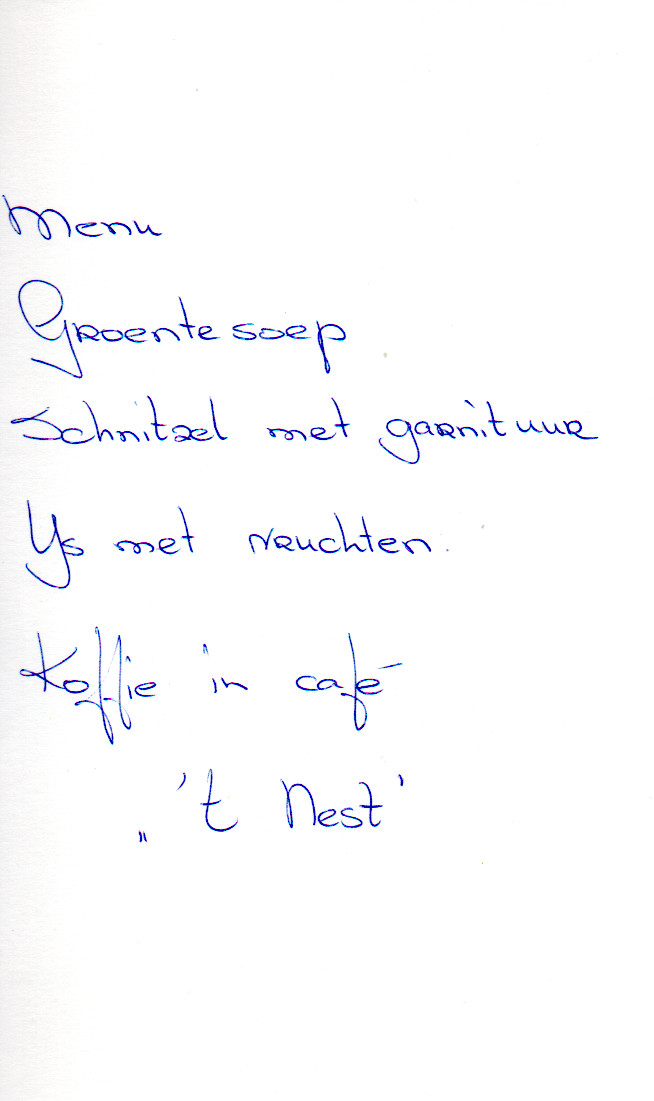 Menu
Groentesoep
Schnitzel met garnituur
Ys met vruchten.
Koffie in café
„ 't Nest'